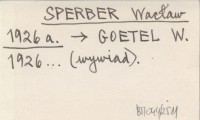 SPERBER Wacław
1926 a. → GOETEL W.
1926... (wywiad).